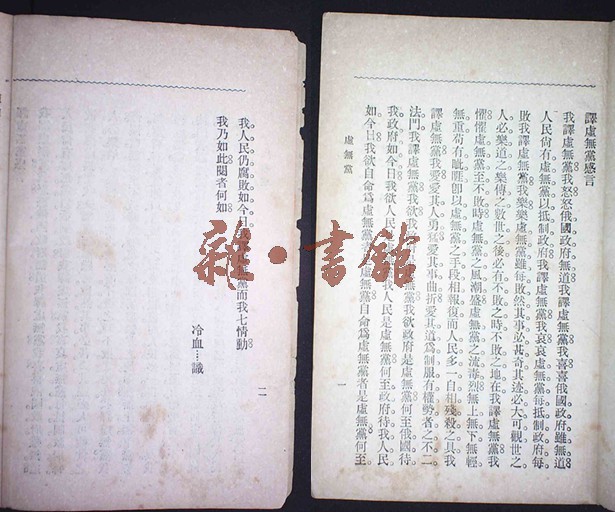 譯虛無黨感言
我譯虛無黨我怒怒俄國政府無道我譯虛無黨我喜喜俄國政府雖無道
人民尙有虛無黨以抵制政府我譯虛無黨我哀哀虛無黨每抵制政府每
敗我譯虛無黨我樂樂虛無黨雖每敗然其事必甚奇其迹必大可觀世之
人必樂道之樂傳之數世之後必有不敗之時不敗之地在我譯虛無黨我
懼懼虛無黨至不敗時虛無黨之風潮盛虛無黨之流毒烈無上無下無輕
無重苟有卽以虛無黨之手段相報復而人民多一自相殘殺之具我
譯虛無黨我愛愛其人勇猛愛其事曲折愛其道爲制服有權勢者之不二
法門我譯虛無黨我欲我無黨我欲政府是虛無黨何至俄國待
我政府如今日我欲人民我人民是虛無黨何至政府待我人民
如今日我欲自命爲虛無黨虛無黨自命爲虛無黨者是虛無黨何至
虛無黨
一
我人民仍腐敗如今日我無黨而我七情動
我乃如此閱者何如
冷血…識
二
雜·書館